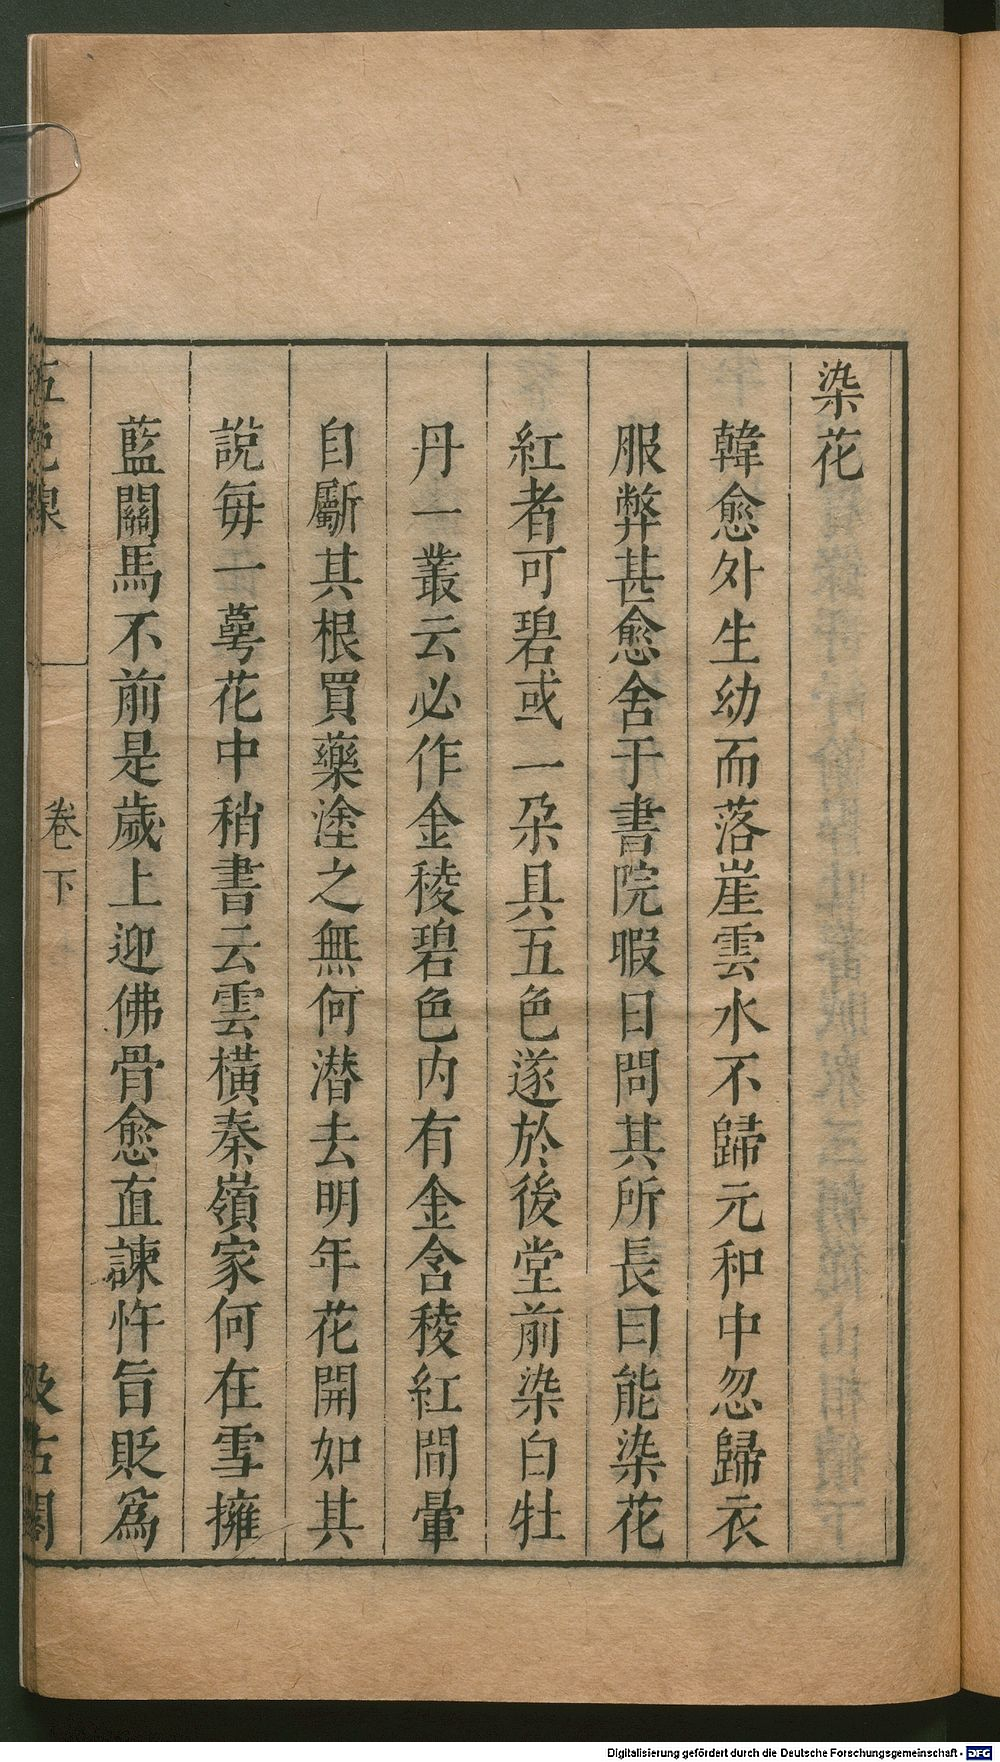 染花
韓愈外生幼而落崖雲水不歸元和中忽歸衣
服弊甚愈舍于書院暇日問其所長曰能染花
紅者可碧或一朶具五色遂於後堂前染白牡
丹一叢云必作金稜碧色内有金含稜紅間暈
自斸其根買藥塗之無何潜去明年花開如其
說每一蕚花中稍書云雲橫秦嶺家何在雪擁
藍關馬不前是歲上迎佛骨愈直諫忤旨貶爲
五色線
卷下
汲古閣
Digitalisierung gefördert durch die Deutsche Forschungsgemeinschaft - DFG